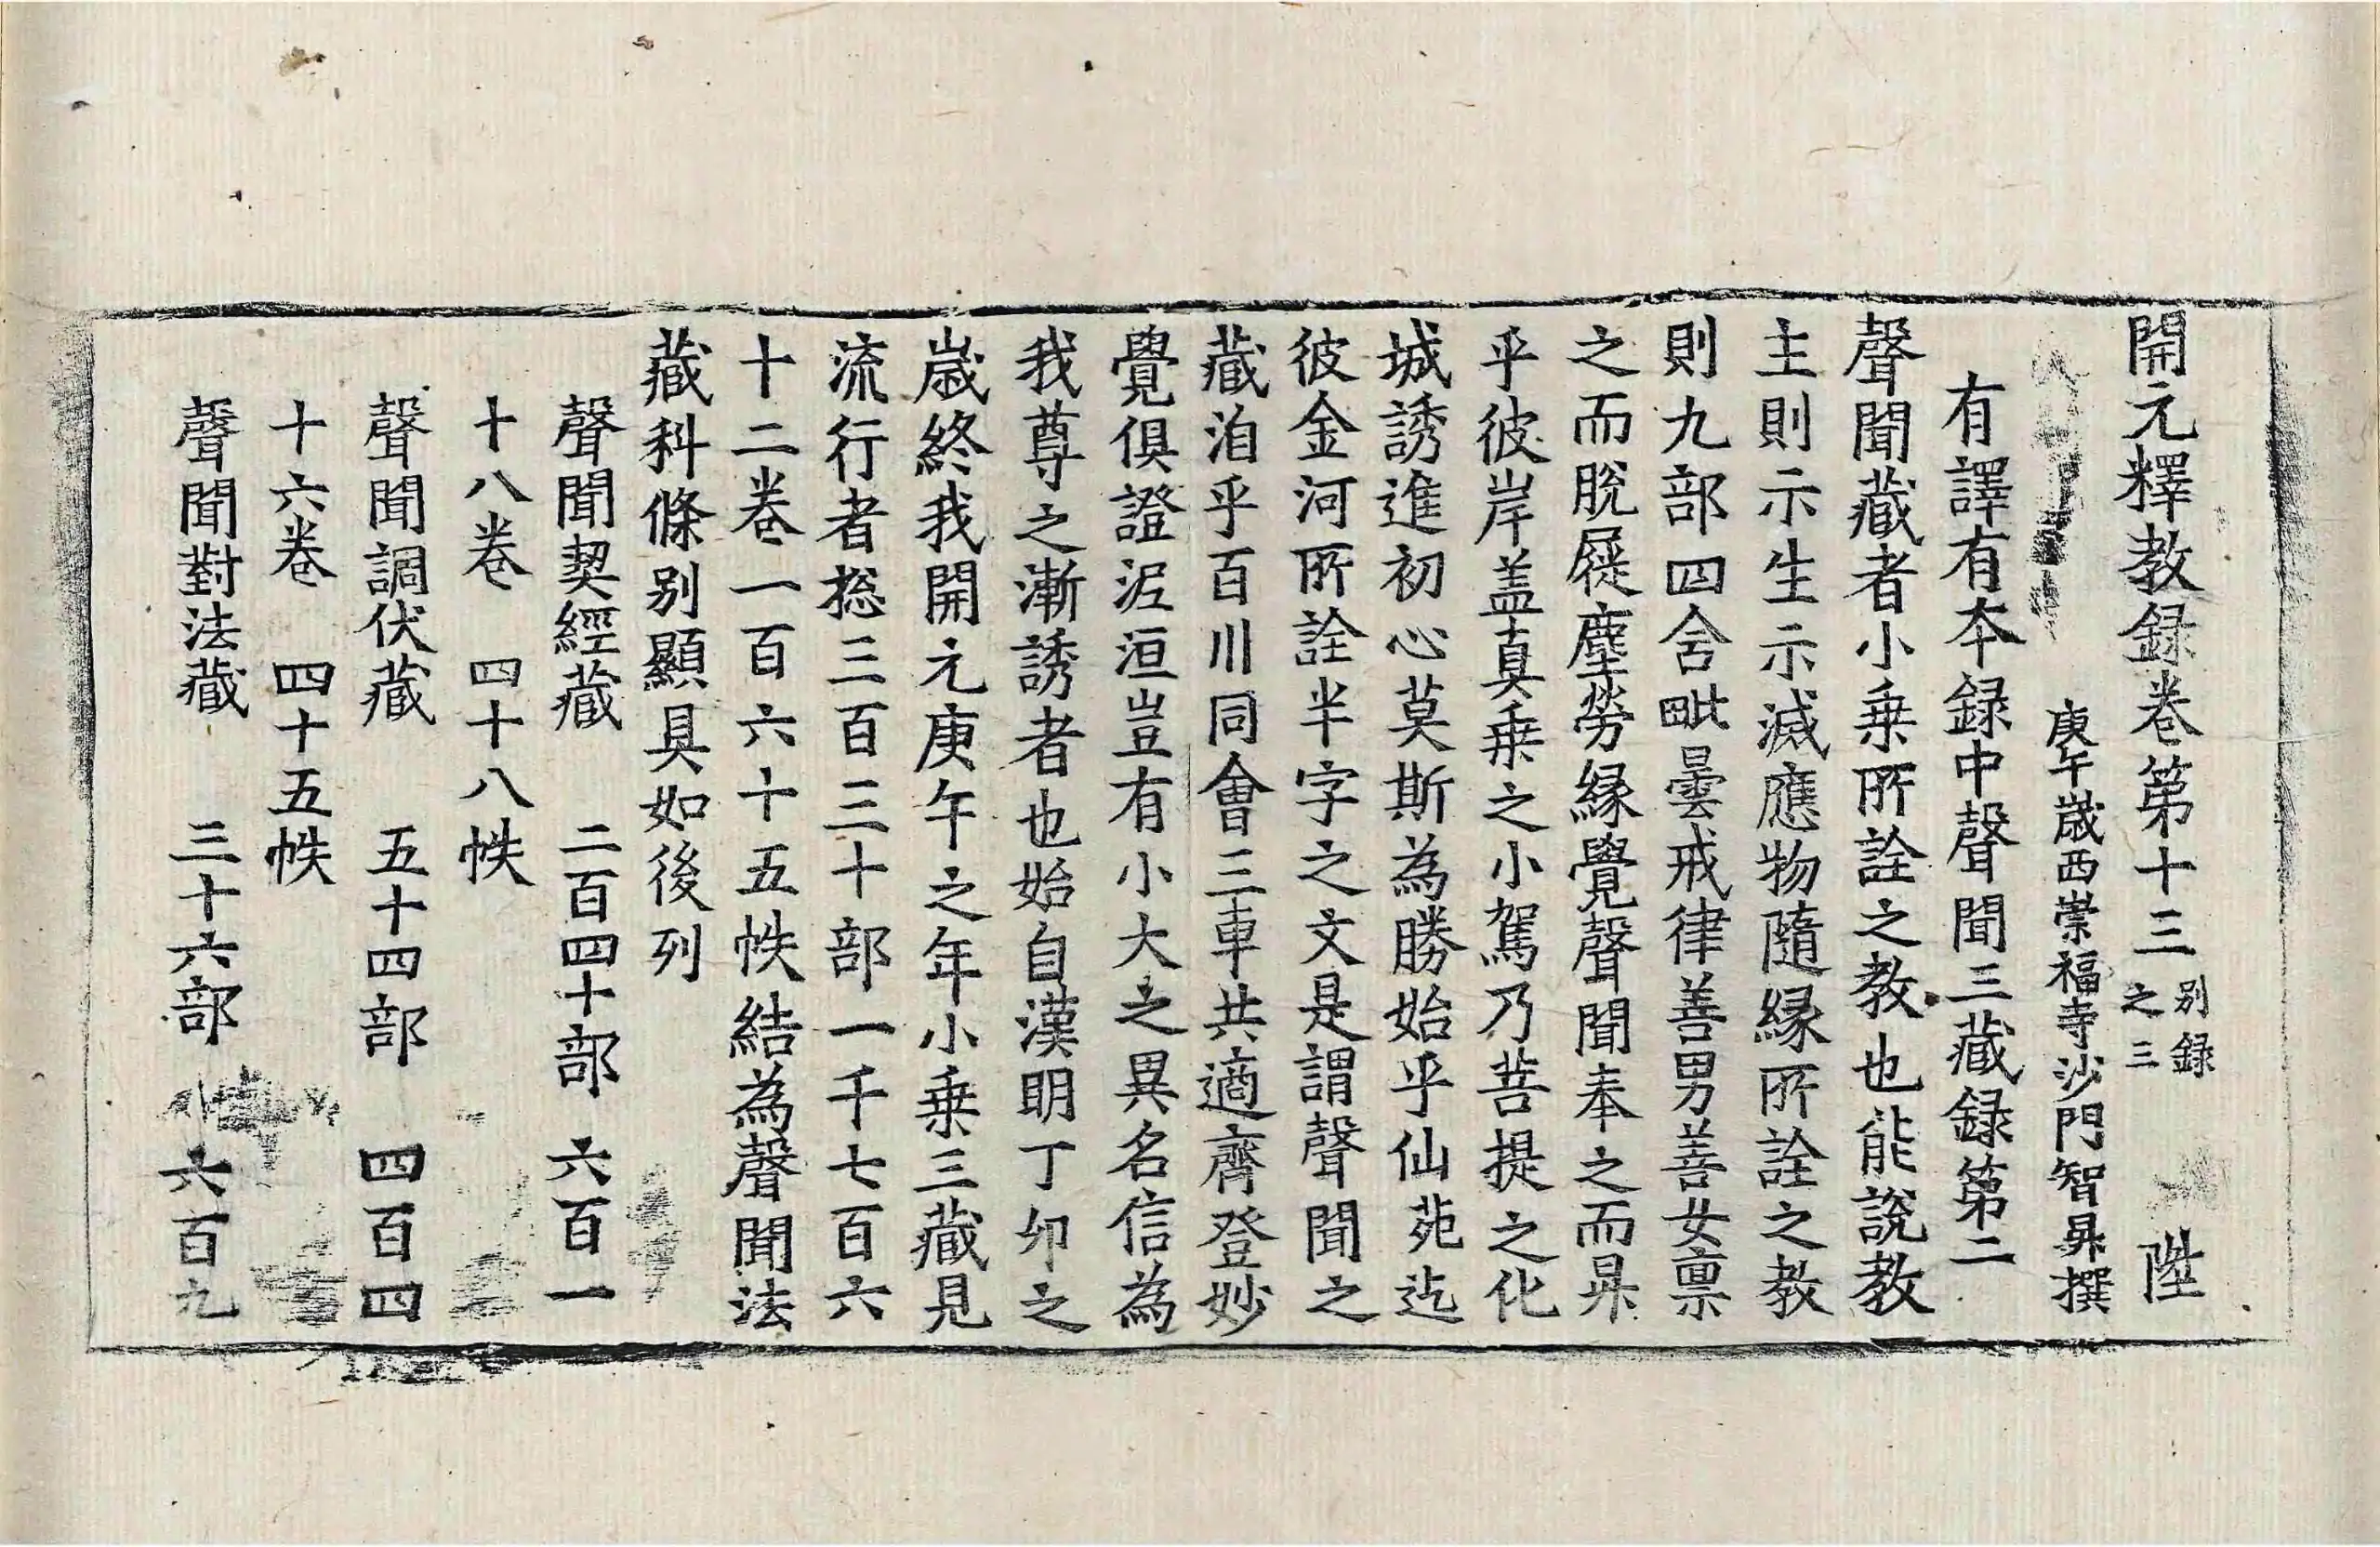 開元釋教錄卷第十三 別錄之三 陞
庚午歲西崇福寺沙門智昇撰
有譯有本錄中聲聞三藏錄第二
聲聞藏者小乗所詮之教也能說教
主則示生示滅應物隨緣所詮之教
則九部四含毗曇戒律善男善女禀
之而脫屣塵勞緣覺聲聞奉之而昇
乎彼岸盖真乗之小駕乃菩提之化
城誘進初心莫斯為勝始乎仙苑迄
彼金河所詮半字之文是謂聲聞之
藏洎乎百川同會三車共適齊登妙
覺俱證泥洹豈有小大之異名信為
我尊之漸誘者也始自漢明丁卯之
歲終我開元庚午之年小乗三藏見
流行者捴三百三十部一千七百六
十二卷一百六十五帙結為聲聞法
藏科條别顯具如後列
聲聞契經藏 二百四十部 六百一
十八卷 四十八帙
聲聞調伏藏 五十四部 四百四
十六卷 四十五帙
聲聞對法藏 三十六部 六百九